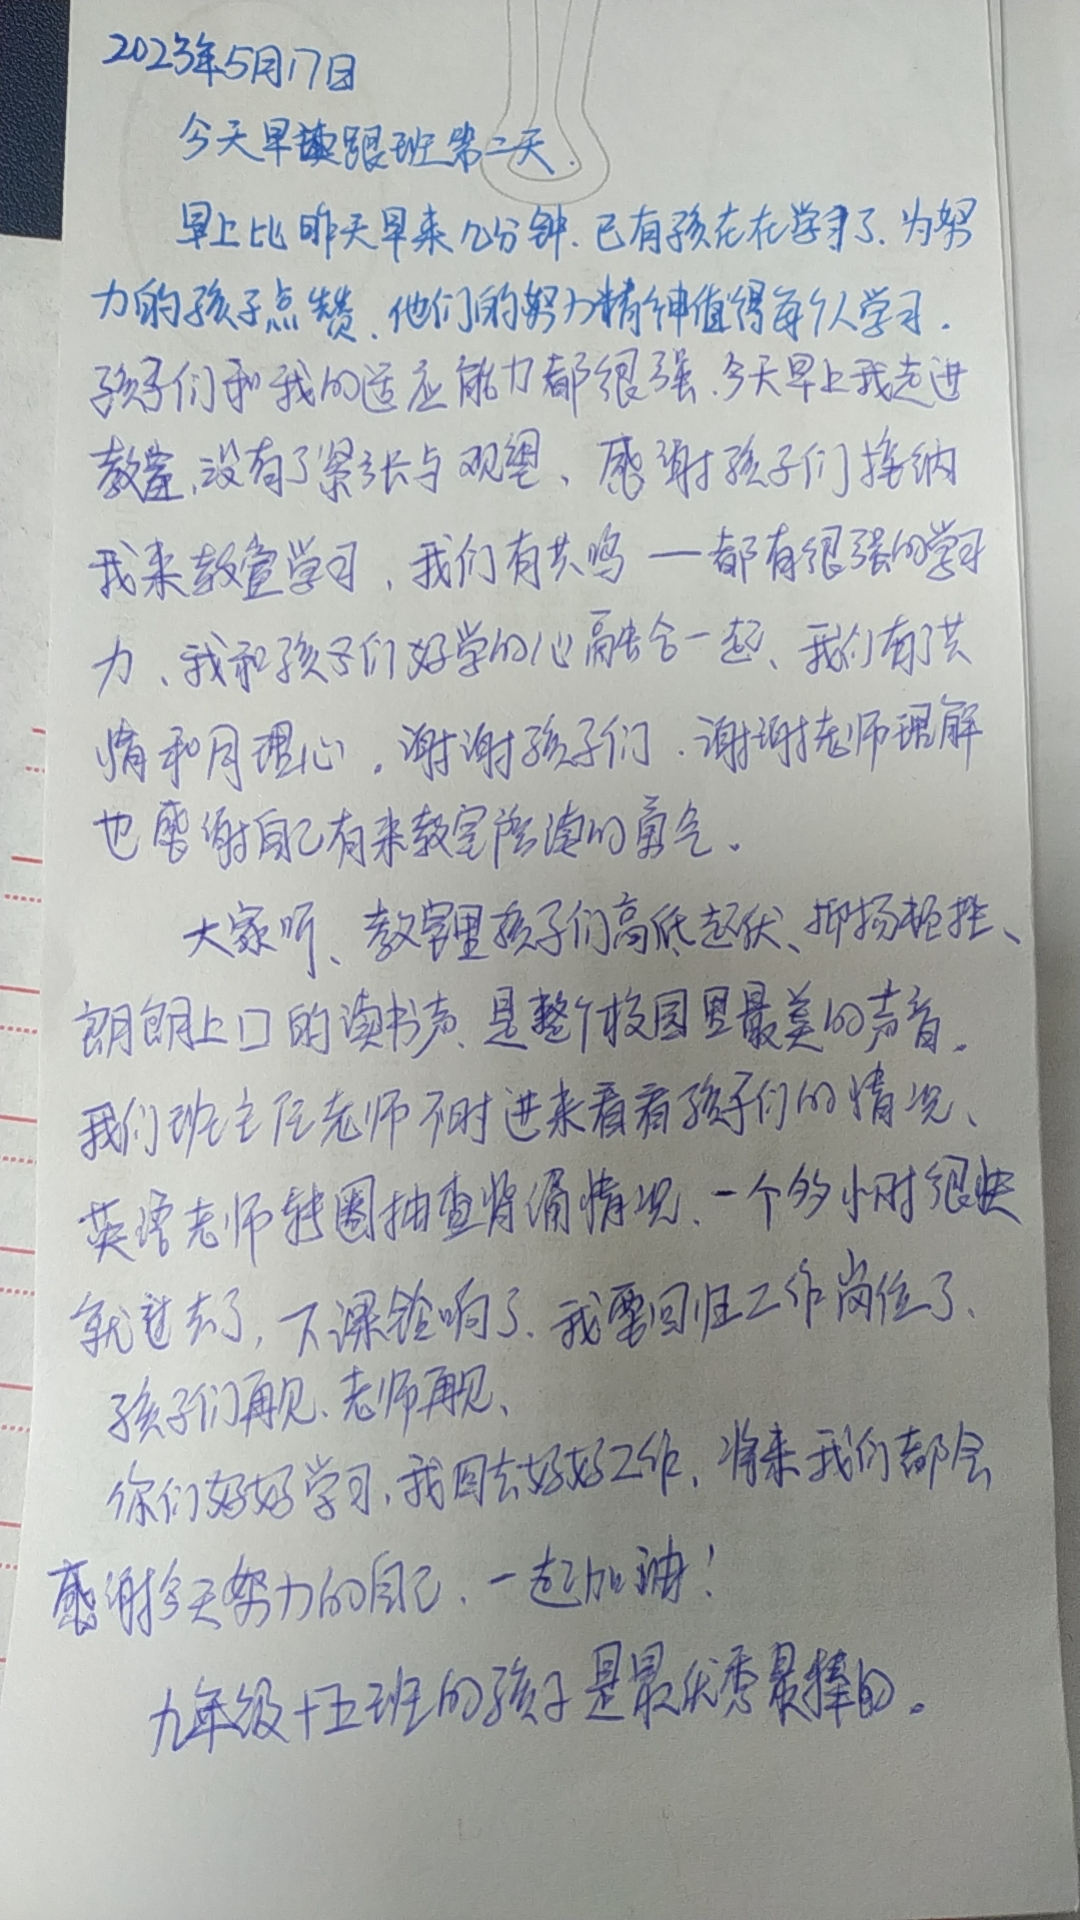 2023年5月17日
今天早读跟班第二天.
早上比昨天早来几分钟.已有孩在在学习了.为努
力的孩子点赞.他们的努力精神值得每个人学习.
孩子们和我的适应能力都很强.今天早上我走进
教室,没有了紧张与观望、感谢孩子们接纳
我来教室学习,我们有共鸣—都有很强的学习
力、我和孩子们好学的心融合一起、我们有了共
情和同理心。谢谢孩子们.谢谢老师理解
也感谢自己有来教室陪读的勇气。
大家听、教室里孩子们高低起伏、抑扬顿挫、
朗朗上口的读书声、是整个校园里最美的声音。
我们班主任老师不时进来看看孩子们的情况、
英语老师转圈抽查背诵情况、一个多小时很快
就过去了,下课铃响了.我要回归工作岗位了、
孩子们再见、老师再见、
你们好好学习,我回去好好工作,将来我们都会
感谢今天努力的自己、一起加油!
九年级十五班的孩子是最优秀最棒的。